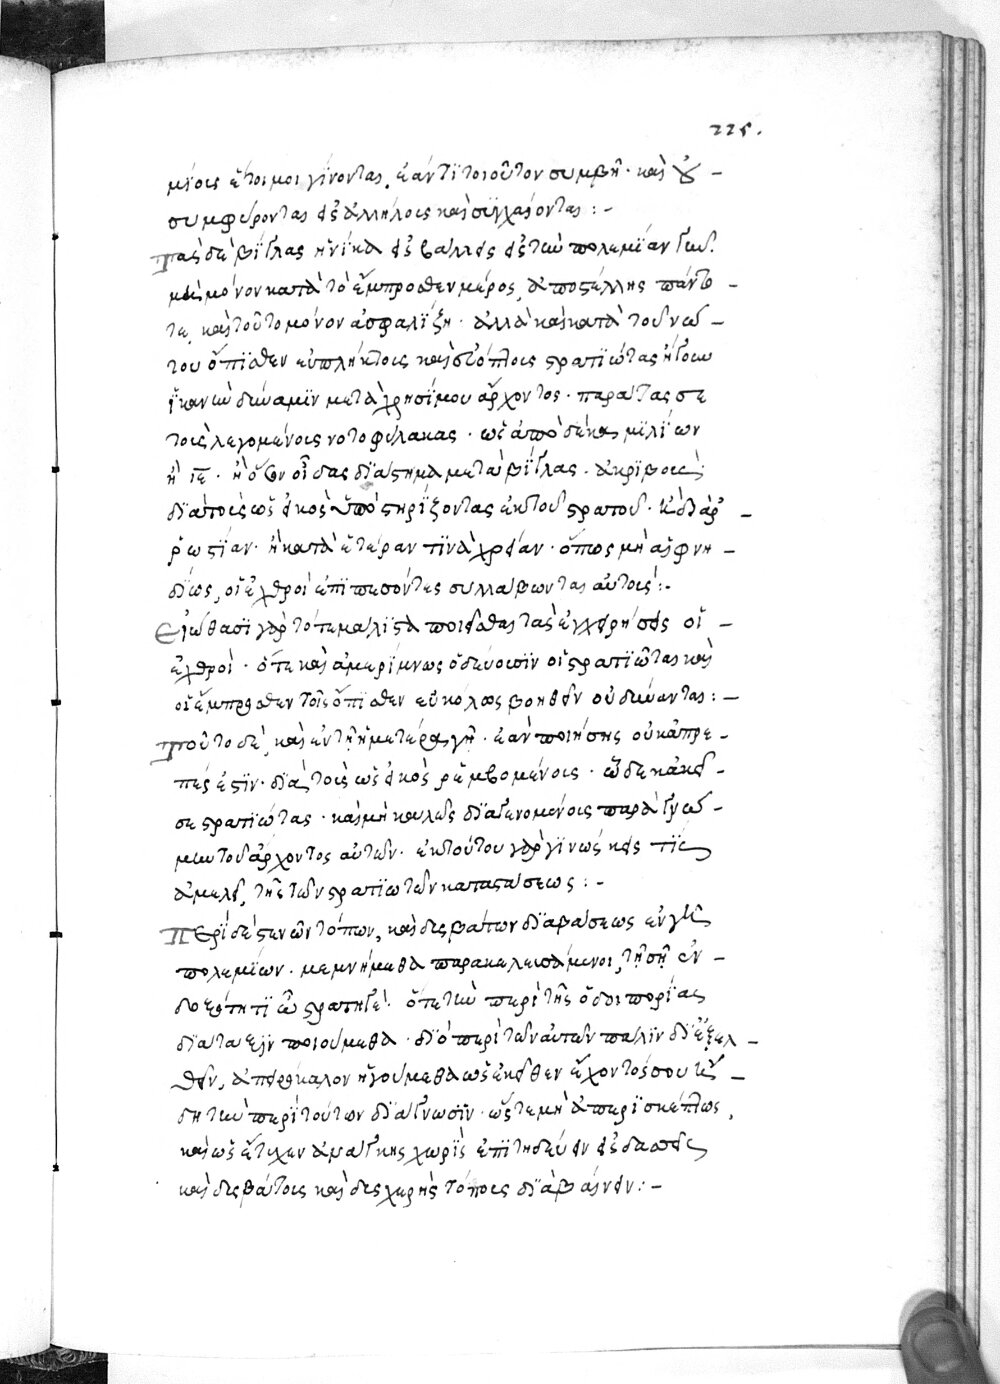 225.
μίοις ἕτοιμοι γίνονται, ἐάν τι τοιοῦτον συμβῇ· καὶ οὐ
συμφύρονται εἰς ἀλλήλοις καὶ συγχέονται :-
Τὰς δὲ βίγλας ἡνίκα εἰσβάλλεις εἰς τὴν πολεμίαν γῆν.
μὴ μόνον κατὰ τὸ ἔμπροσθεν μέρος, ἀποστέλλῃς πάντο
τε, καὶ τοῦτο μόνον ἀσφαλίζῃ· ἀλλὰ καὶ κατὰ τοῦ νώ
του ὄπισθεν εὐπλήκτοις καὶ εὐόπλοις στρατιώτας ἤτοι
ἱκανὴν δύναμιν μετὰ χρησίμου ἄρχοντος· παρατάσσε
τοὺς λεγομένοις νοτοφύλακας· ὡς ἀπὸ δέκα μιλίων
ἢ ιε· ἢ διάστημα μετὰ βίγλας· ἀκριβοῦς
διὰ τοὺς ὡς εἰκὸς ὑποστηρίζοντας ἐκ τοῦ στρατοῦ· ἢ δι' ἀρ
ρωστίαν· ἢ κατὰ ἑτέραν τινὰ χρείαν· ὅπως μὴ αἰφνη
δίως, οἱ ἐχθροὶ ἐπιπεσόντες συλλάβωνται αὐτοὺς :-
Εἰώθασι γὰρ τότε μάλιστα ποιεῖσθαι τὰς ἐγχειρήσεις οἱ
ἐχθροὶ· ὅτε καὶ ἀμερίμνως ὁδεύουσιν οἱ στρατιῶται καὶ
οἱ ἔμπροσθεν τοῖς ὄπισθεν εὐκόλως βοηθεῖν οὐ δύνανται :-
Τοῦτο δὲ, καὶ ἐν τῇ ἡμετέρᾳ γῇ· ἐὰν ποιήσῃς οὐκ ἀπρε
πές ἐστιν· διὰ τοὺς ὡς εἰκὸς ῥεμβομένοις· ὧδε κἀκεῖ
σε στρατιώτας· καὶ μὴ καλῶς διαγενομένοις παρὰ γνώ
μην τοῦ ἄρχοντος αὐτῶν· ἐκ τούτου γὰρ γινώσκεις τίς
ἀμελεῖ, τῆς τῶν στρατιωτῶν καταστάσεως :-
Περὶ δὲ στενῶν τόπων, καὶ δυσβάτων διαβάσεως ἐν γῇ
πολεμίων· μεμνήμεθα παρακελευσάμενοι, τῇ σῇ ἐν
δοξότητι ὦ στρατηγέ· ὅτε τὴν περὶ τῆς ὁδοιπορίας
διάταξιν ποιούμεθα· διὸ περὶ τῶν αὐτῶν πάλιν διεξελ
θεῖν, ἀπειρόκαλον ἡγούμεθα ὡς ἐκεῖθεν ἔχοντός σου ἤ
δη τὴν περὶ τούτων διάγνωσιν· ὥστε μὴ ἀπερισκέπτως,
καὶ ὡς ἔτυχεν ἀνάγκης χωρὶς ἐπιτηδεύειν εἰς δασεῖς
καὶ δυσβάτοις καὶ δυσχερῆς τόποις διαβαίνειν :-